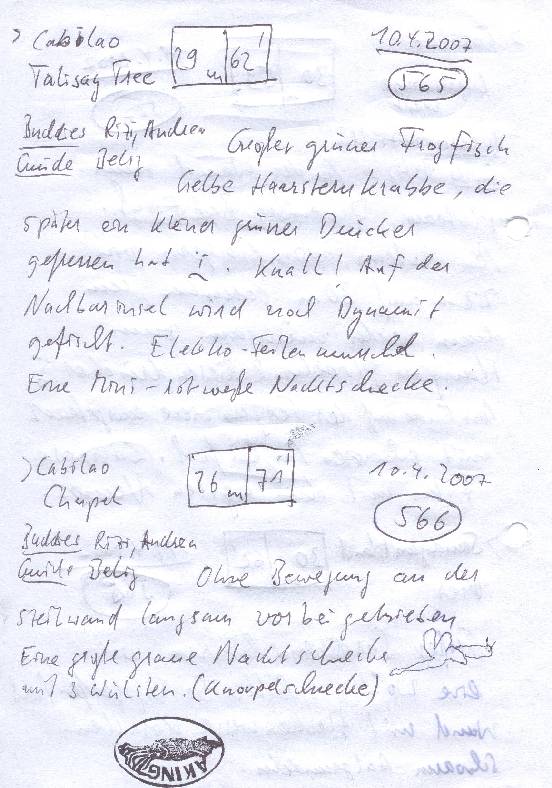 > Cabilao
29 m 62'
10.4.2007
Talisay Tree
565
Buddies Rizi, Andrea
Guide Deliz
Großer grüner Frogfisch
Gelbe Haarsternkrabbe, die
später ein kleiner grüner Drücker
gefressen hat. Knall! Auf der
Nachbarinsel wird noch Dynamit
gefischt. Elektro-Feilenmuschel.
Eine Mini-rotweiße Nachtschnecke.
> Cabilao
26 m 71'
10.4.2007
Chapel
566
Buddies Rizi, Andrea
Guide Deliz
Ohne Bewegung an der
Steilwand langsam vorbeigetrieben
Eine große graue Nachtschnecke
mit 3 Wülsten. (Knorpelschnecke)
AKING